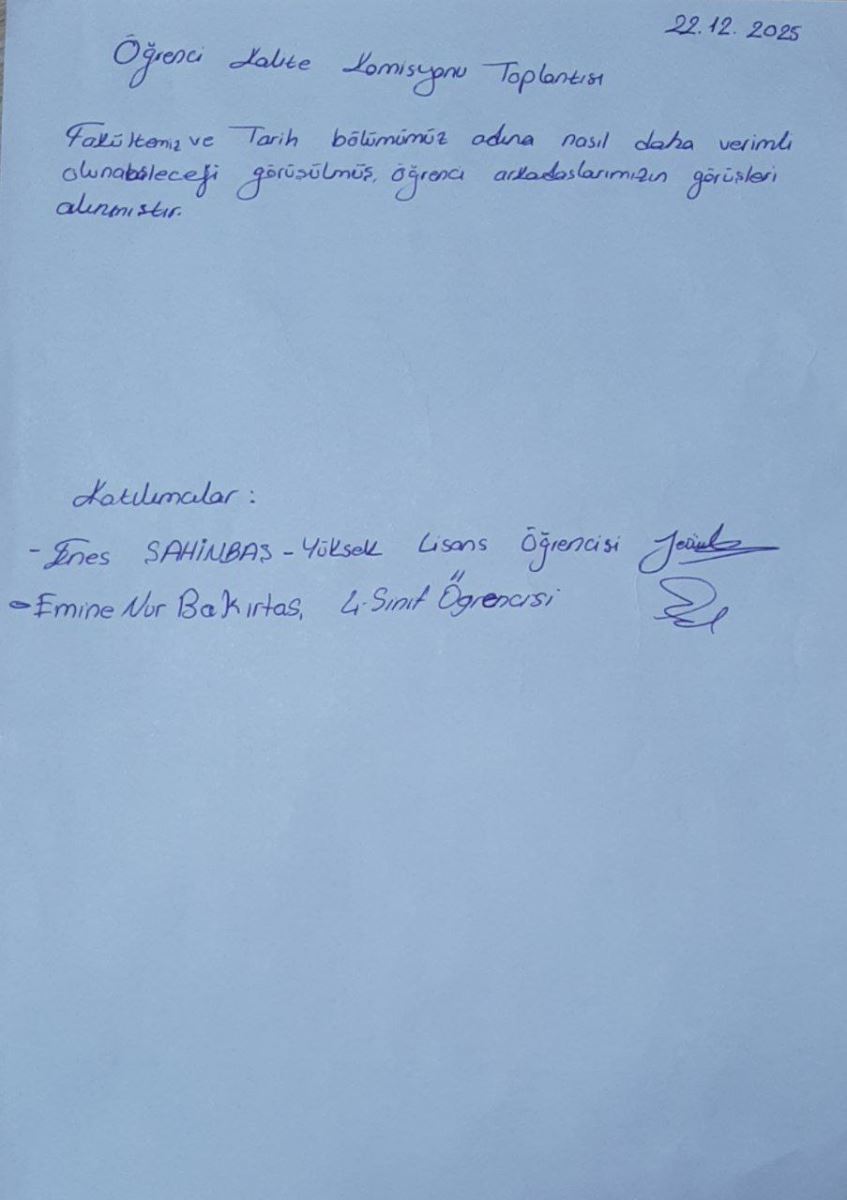 22.12.2025
Öğrenci Kalite Komisyonu Toplantısı
Fakültemiz ve Tarih bölümümüz adına nasıl daha verimli
olunabileceği görüşülmüş, öğrenci arkadaşlarımızın görüşleri
alınmıştır.
Katılımcılar :
- Enes ŞAHİNBAŞ - Yüksek Lisans Öğrencisi
- Emine Nur Bakırtaş, 4. Sınıf Öğrencisi